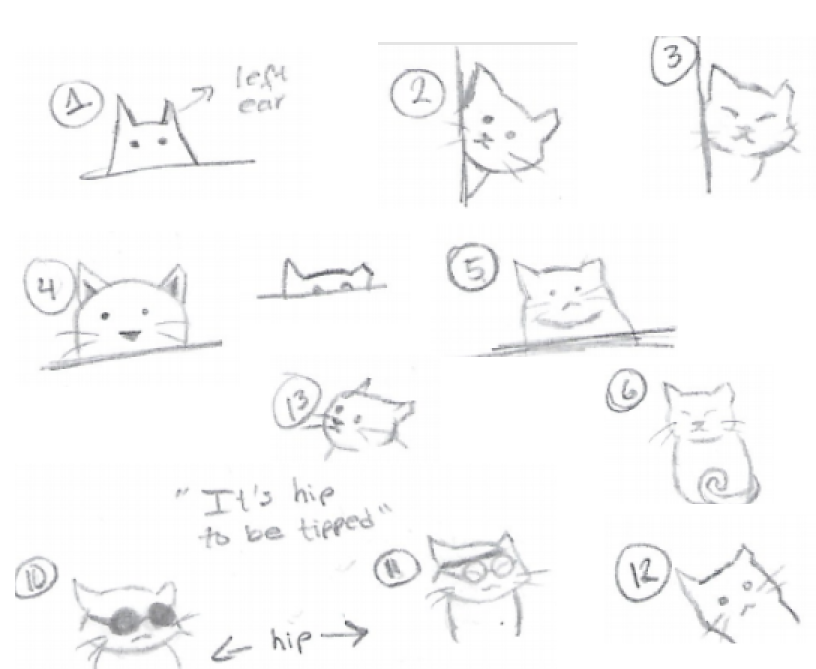 1
left
ear
2
3
4
5
13
6
"It's hip
to be tipped"
10
← hip →
11
12